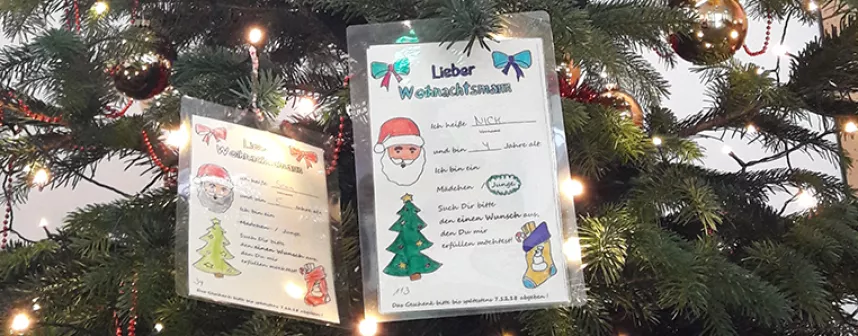 Lieber
Weihnachtsmann
Ich heiße
und bin
Jahre alt.
Ich bin ein
Mädchen / Junge
Such Dir bitte
den einen Wunsch aus,
den Du mir
erfüllen möchtest!
34
Lieber
Weihnachtsmann
Ich heiße NICK
Vorname
und bin 4 Jahre alt.
Ich bin ein
Mädchen Junge
Such Dir bitte
den einen Wunsch aus,
den Du mir
erfüllen möchtest!
113
Das Geschenk bitte bis spätestens 7.12.18 abgeben!